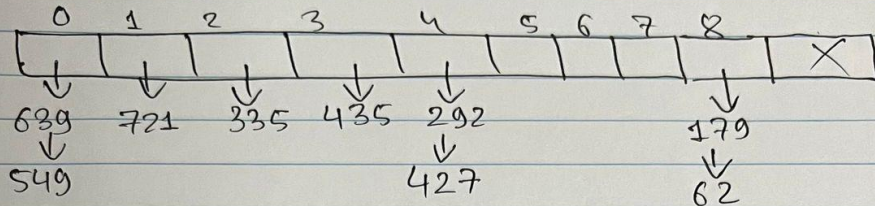 0 1 2 3 4 5 6 7 8
X
639 721 335 435 292 179
549 427 62